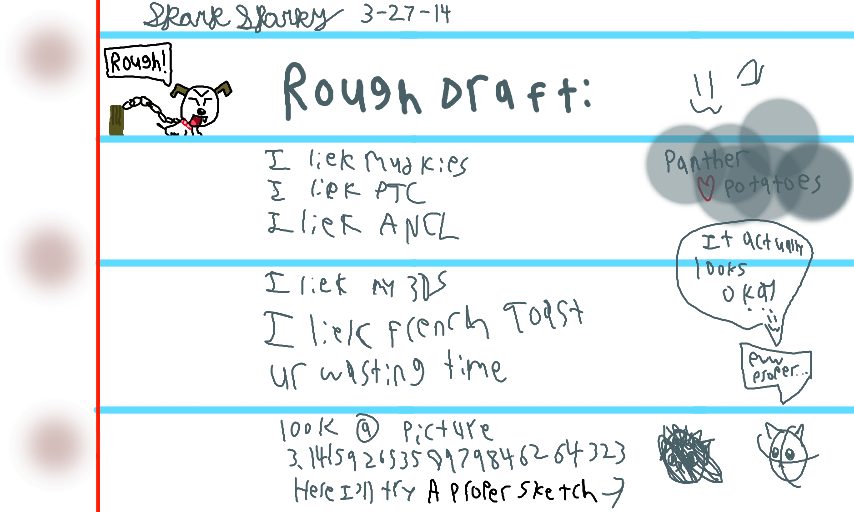 Skark Sparky 3-27-14
Rough!
Rough Draft:
I liek Mudkies
I liek PTC
I liek ANCL
Panther
♡ potatoes
It actually
looks
okay
I liek my 3DS
I liek french Toast
ur wasting time
eww
proper...
look @ picture
3.14159265358979846264323
Here I'll try A proper sketch →